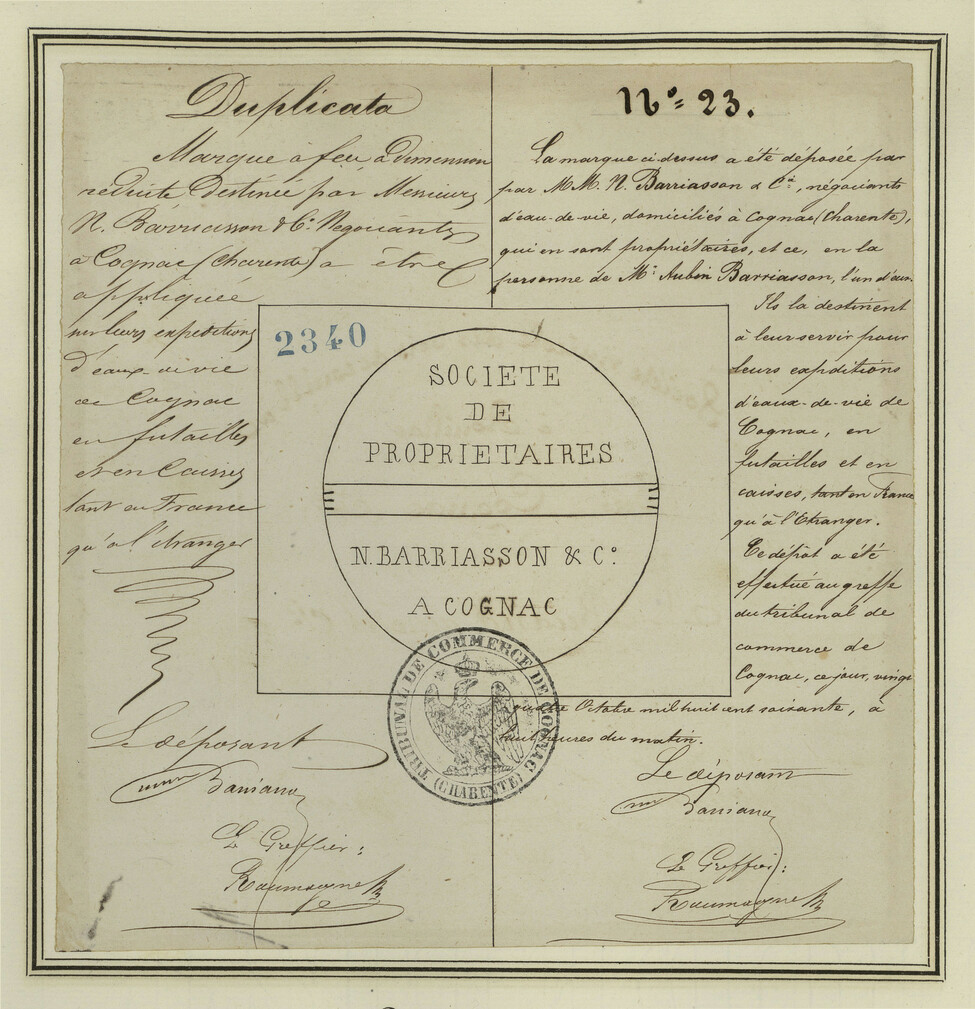 Duplicata
Marque à feu à Dimension
réduite Destinée par Messieurs
N. Barriasson & Cie Négociants
à Cognac (Charente) à être
appliquée
sur leurs expeditions
d'eaux de vie
de Cognac
en futailles
et en Caisses
tant en France
qu'à l'étranger
Le déposant
Le Greffier:
No= 23.
La marque ci-dessus a été déposée par
par M.M. N. Barriasson & Cie, négociants
d'eau-de-vie, domiciliés à Cognac (Charente),
qui en sont propriétaires, et ce, en la
personne de Mr Aubin Barriasson, l'un d'eux.
Ils la destinent
à leur servir pour
leurs expéditions
d'eaux-de-vie de
Cognac, en
futailles et en
caisses, tant en France
qu'à l'Etranger.
Ce dépôt a été
effectué au greffe
du tribunal de
commerce de
Cognac, ce jour, vingt
Octobre mil huit cent soixante, à
heures du matin.
Le déposant
Le Greffier:
2340
SOCIETE
DE
PROPRIETAIRES
N. BARRIASSON & Co
A COGNAC
TRIBUNAL DE COMMERCE DE COGNAC
(CHARENTE)